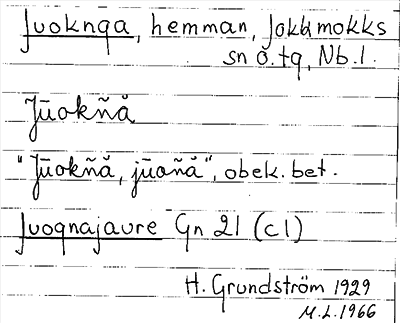 Juoknga, hemman, Jokkmokks
sn o. tg, Nb. l.
Jūokñå̆
"Jūokñå̆, jūoñå̆", obek. bet.
Juoqnajaure Gn 21 (c1)
H. Grundström 1929
M.L. 1966